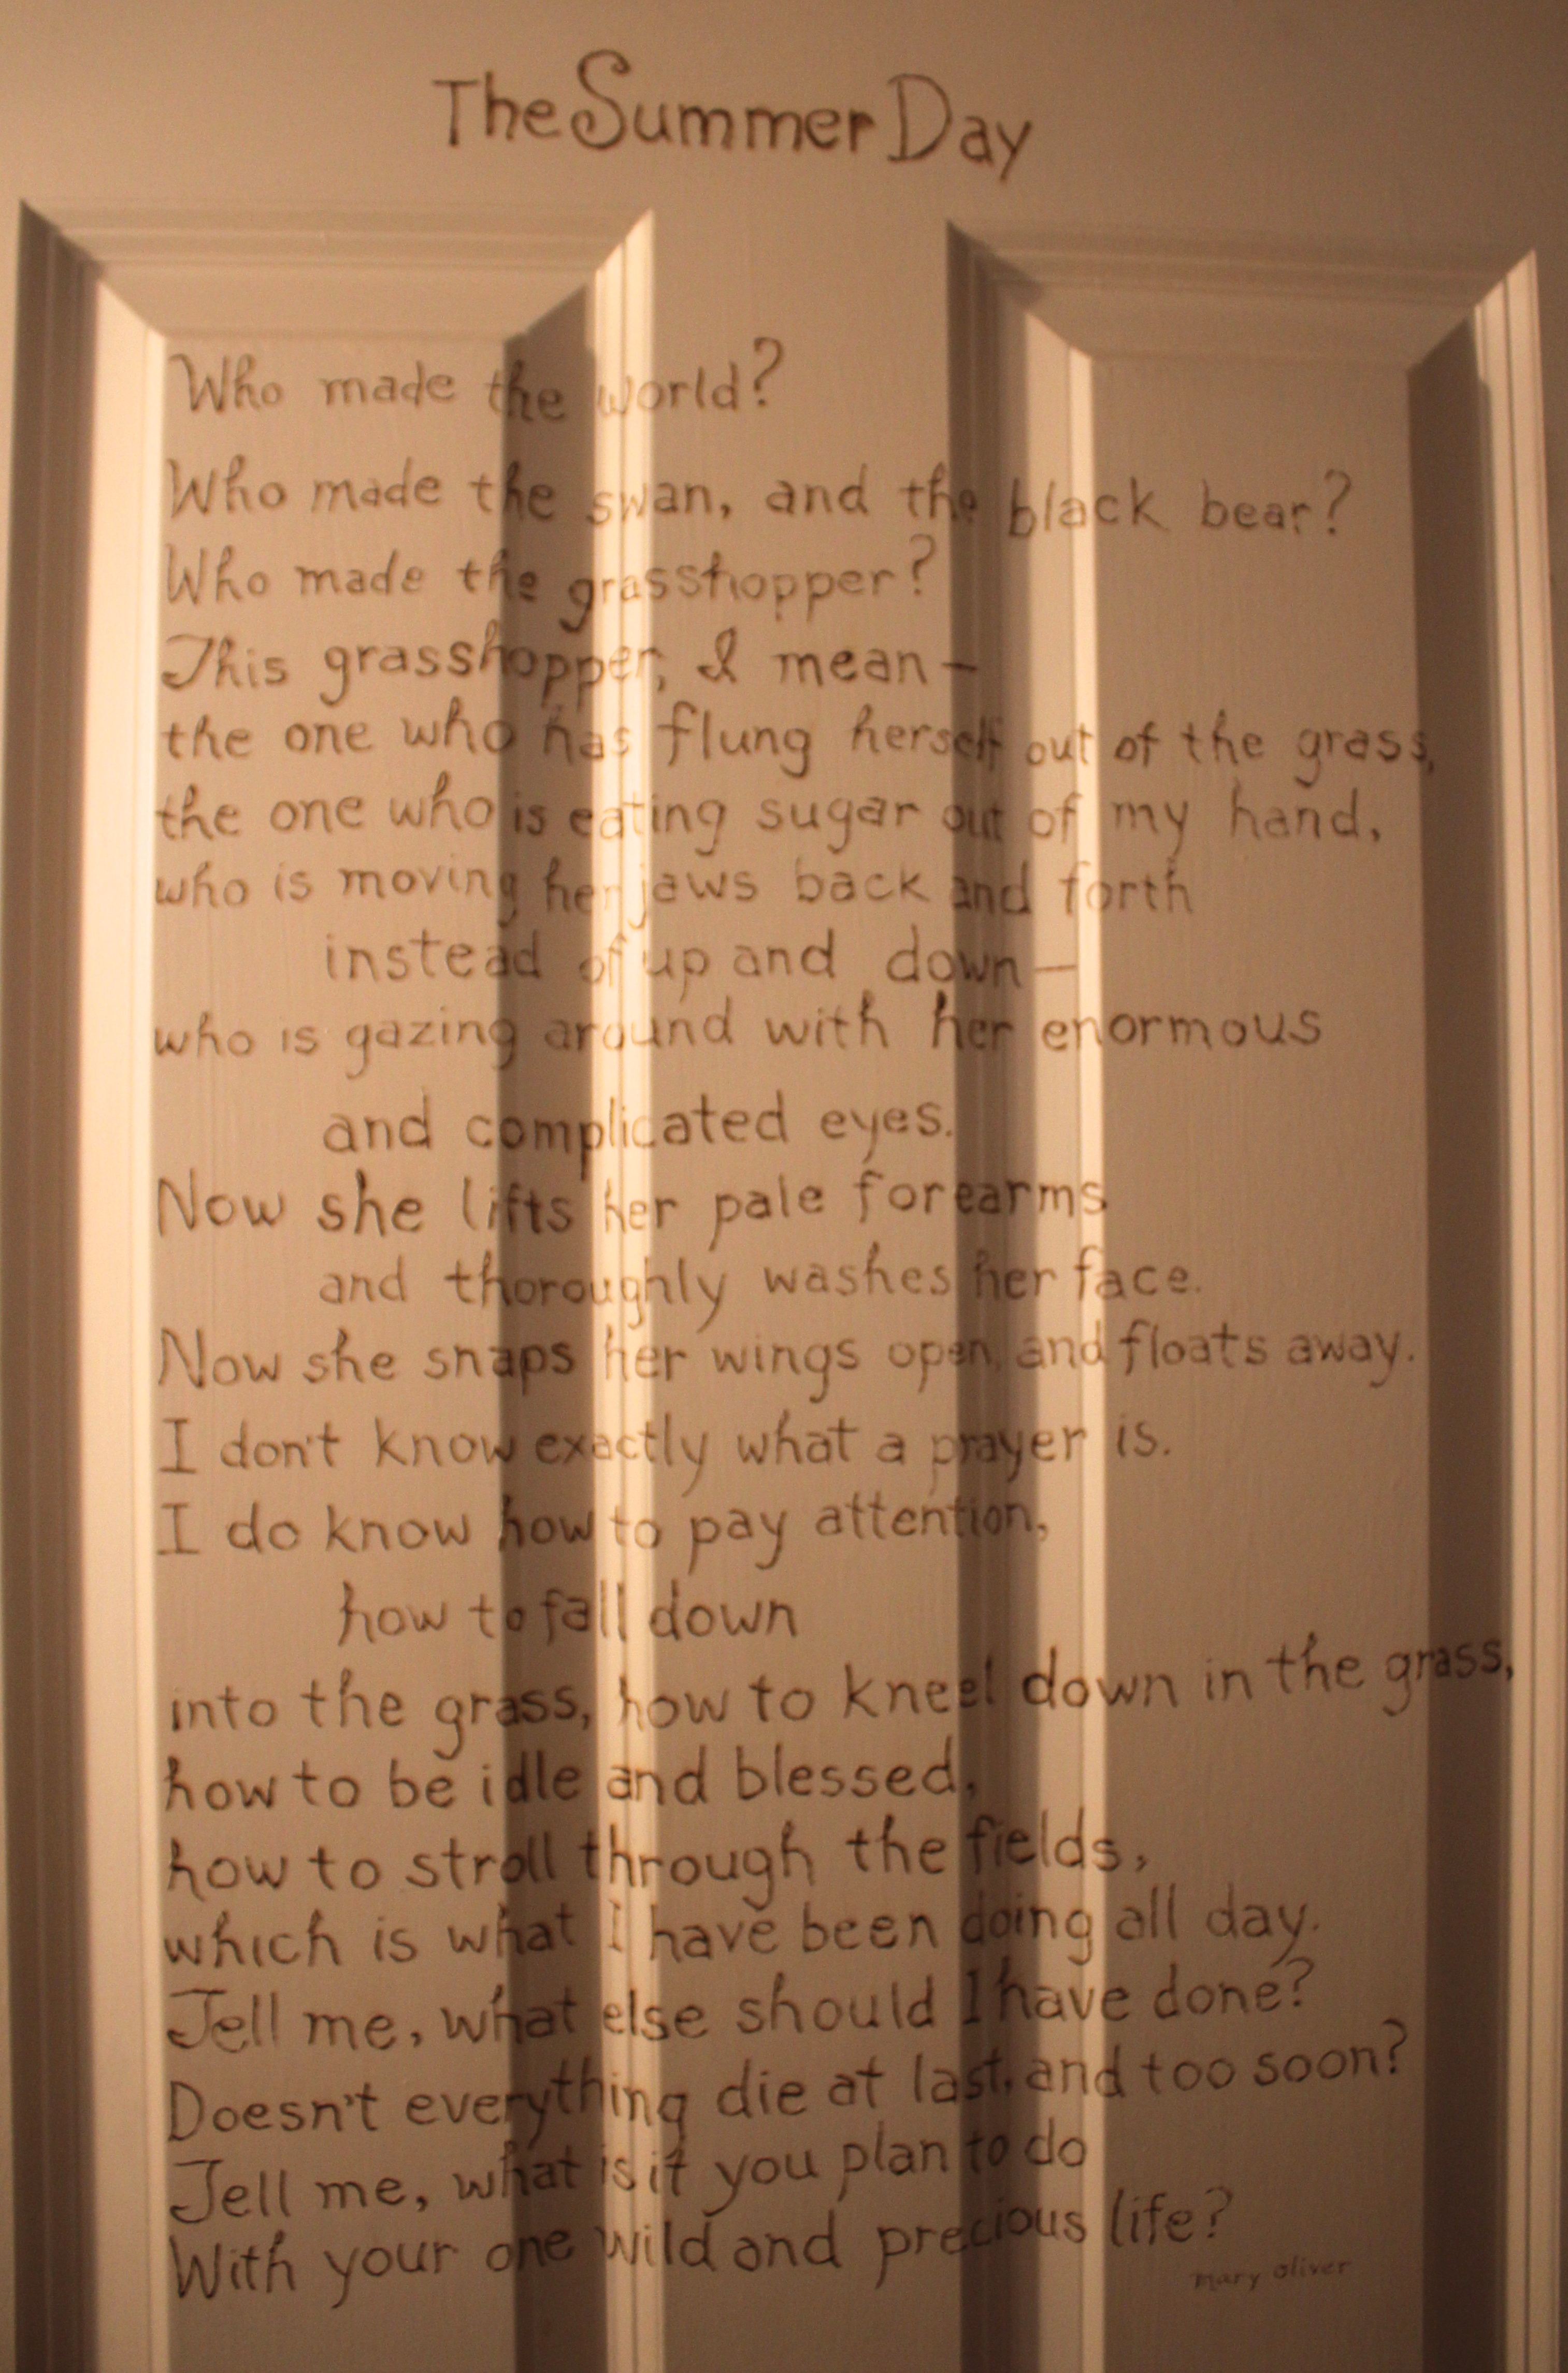 The Summer Day
Who made the world?
Who made the swan, and the black bear?
Who made the grasshopper?
This grasshopper, I mean—
the one who has flung herself out of the grass,
the one who is eating sugar out of my hand,
who is moving her jaws back and forth
instead of up and down—
who is gazing around with her enormous
and complicated eyes.
Now she lifts her pale forearms
and thoroughly washes her face.
Now she snaps her wings open, and floats away.
I don't know exactly what a prayer is.
I do know how to pay attention,
how to fall down
into the grass, how to kneel down in the grass,
how to be idle and blessed,
how to stroll through the fields,
which is what I have been doing all day.
Tell me, what else should I have done?
Doesn't everything die at last, and too soon?
Tell me, what is it you plan to do
With your one wild and precious life?
Mary Oliver